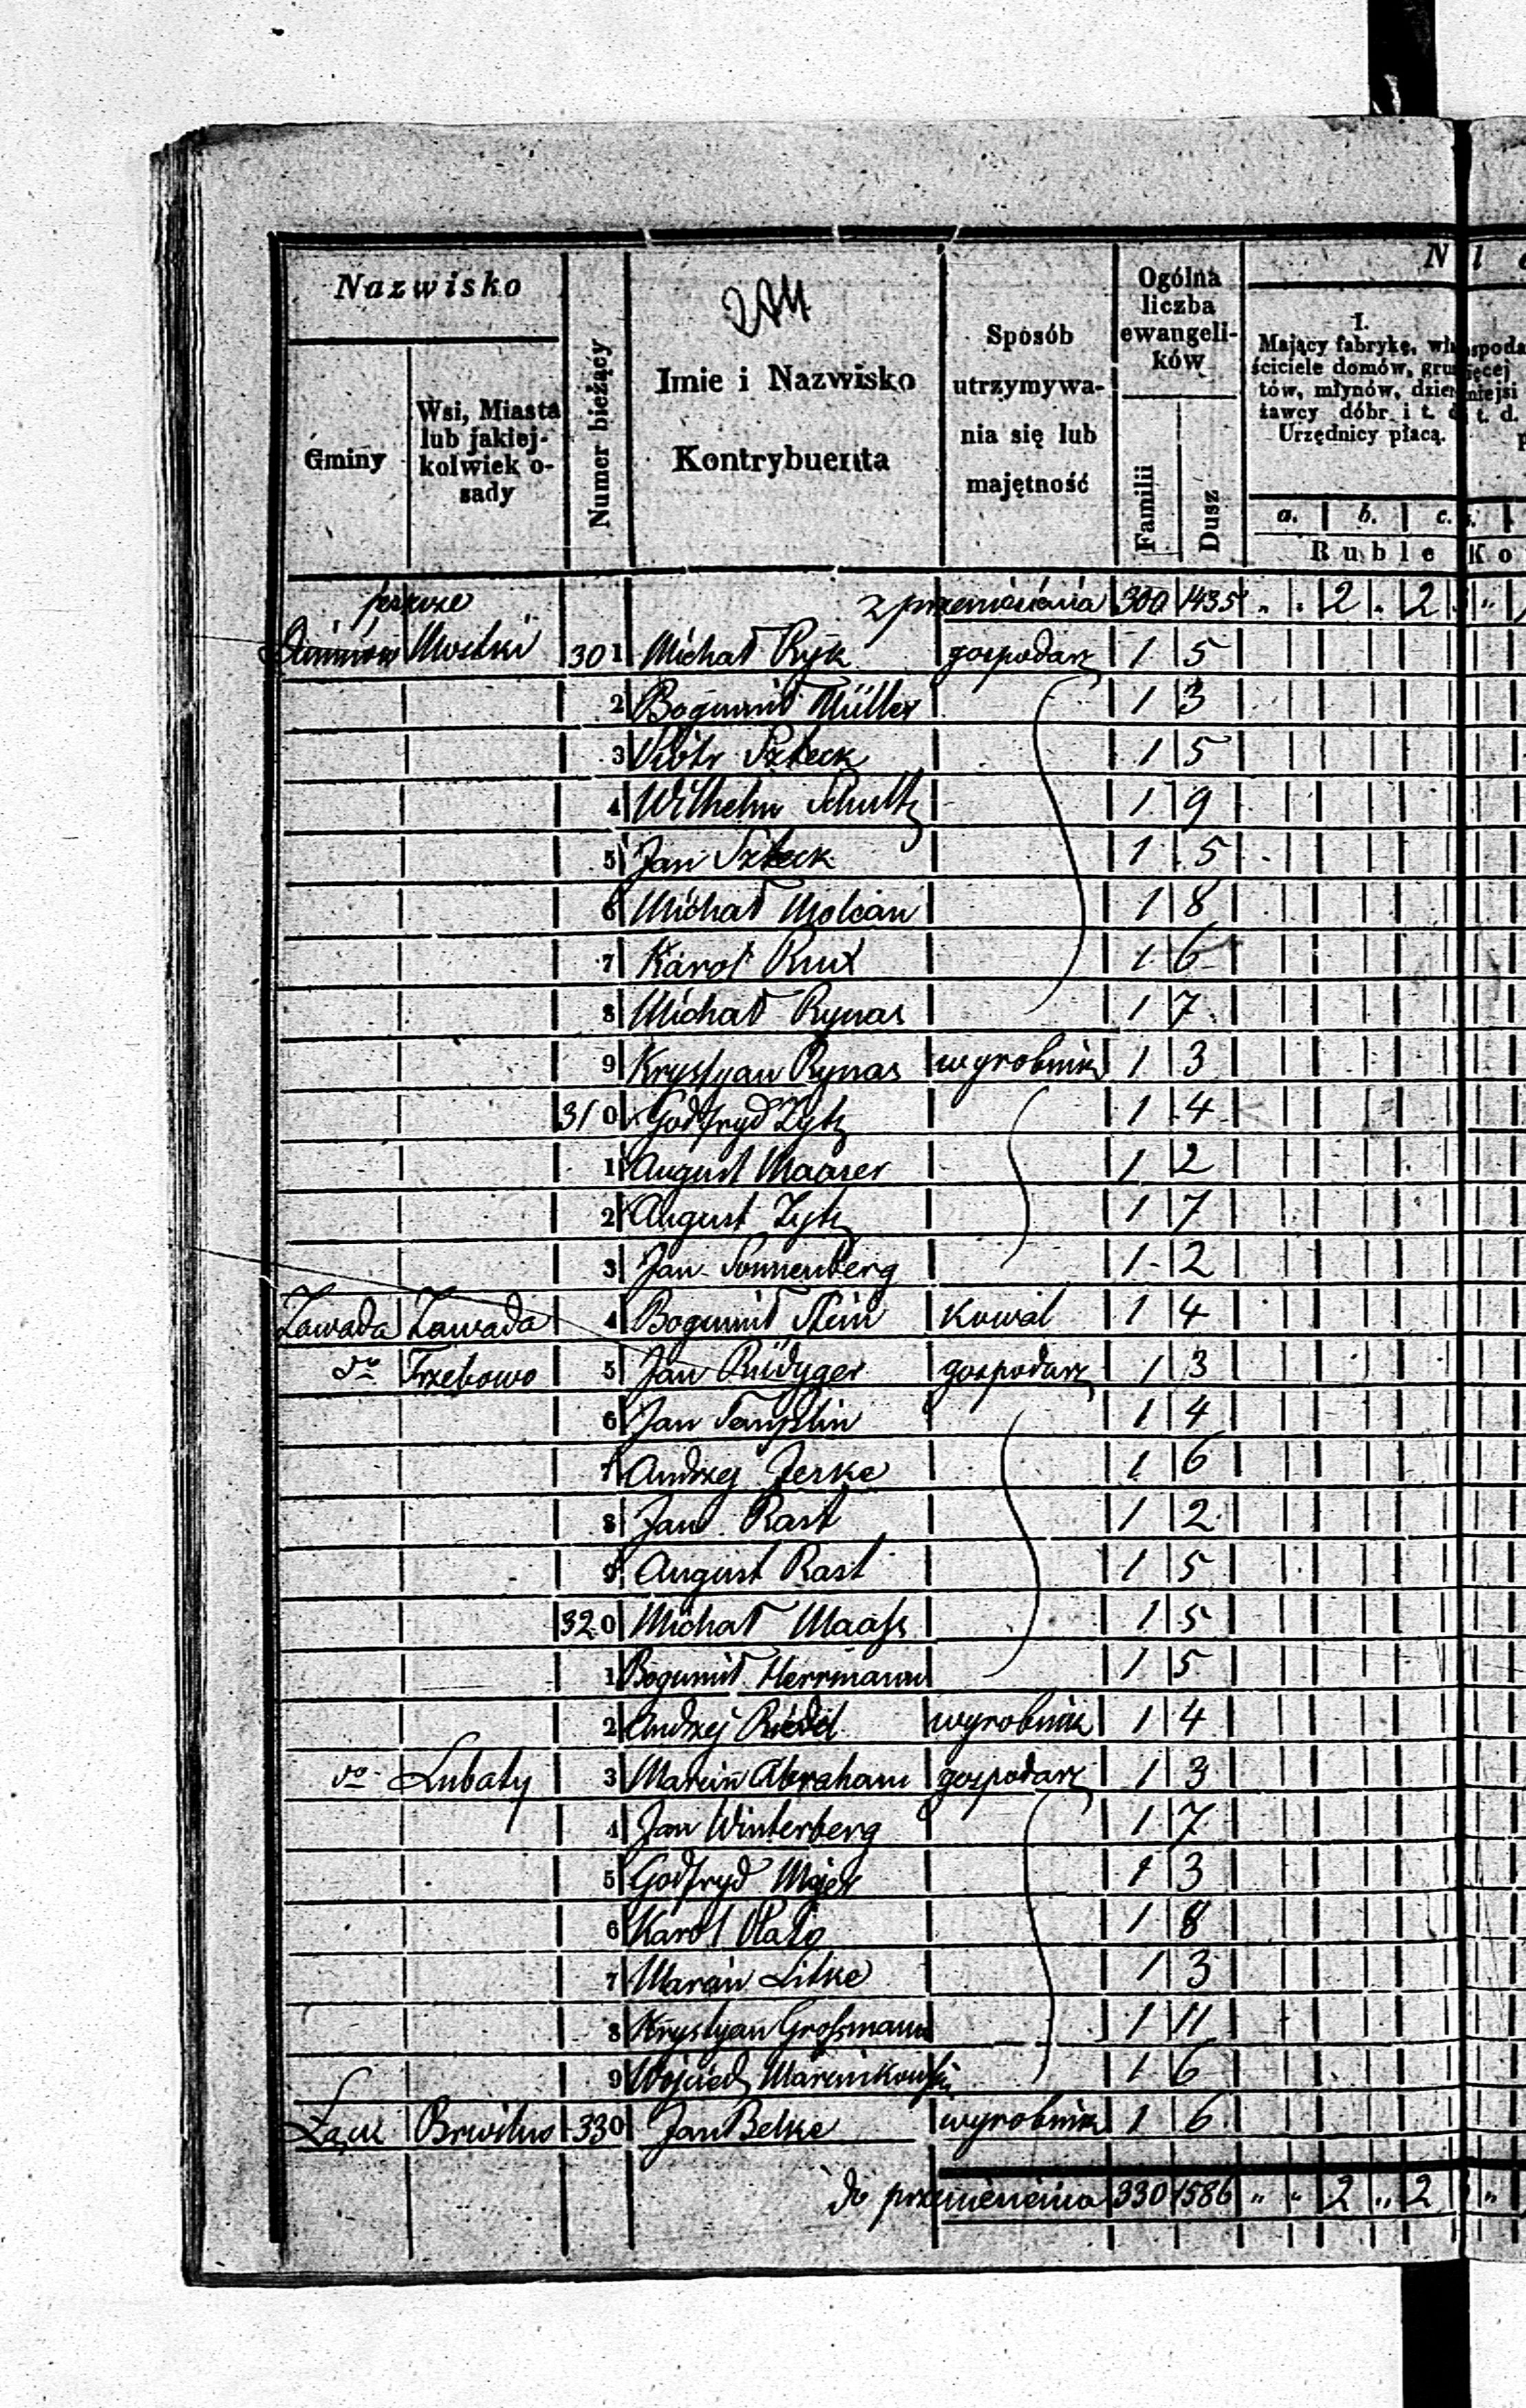 Nazwisko
Gminy
Wsi, Miasta lub jakiej-kolwiek o-sady
Numer bieżący
Imie i Nazwisko
Kontrybuenta
Sposób utrzymywa-nia się lub majętność
Ogólna liczba ewangeli-ków
Familii
Dusz
N
I.
Mający fabrykę, wła
ściciele domów, grun
tów, młynów, dzier
żawcy dóbr i t. d
Urzędnicy płacą.
a. b. c.
Ruble Ko
z przeniesienia 300 1435 2 2
301 Michał Ryk gospodarz 1 5
2 Bogumił Müller 1 3
3 Piotr Szteck 1 5
4 Wilhelm Schultz 1 9
5 Jan Szteck 1 5
6 Michał Molcan 1 8
7 Karol Rux 1 6
8 Michał Rynas 1 7
9 Krystyan Rynas wyrobnik 1 3
310 Godfryd Zytz 1 4
1 August Maaser 1 2
2 August Zytz 1 7
3 Jan Sonnenberg 1 2
Zawada Zawada 4 Bogumił Stein Kowal 1 4
do Trzebowo 5 Jan Rüdyger gospodarz 1 3
6 Jan Templin 1 4
7 Andrzej Jeske 1 6
8 Jan Rast 1 2
9 August Rast 1 5
320 Michał Maass 1 5
1 Bogumił Herrmann 1 5
2 Andrzej Riedel wyrobnik 1 4
do Lubaty 3 Marcin Abraham gospodarz 1 3
4 Jan Winterberg 1 7
5 Godfryd Majer 1 3
6 Karol 1 8
7 Marcin Litke 1 3
8 Krystyan Grossmann 1 11
9 Wojciech Marcinkowski 1 6
Łąck Brwilno 330 Jan Belke wyrobnik 1 6
do przeniesienia 330 1586 " " 2 " 2 "